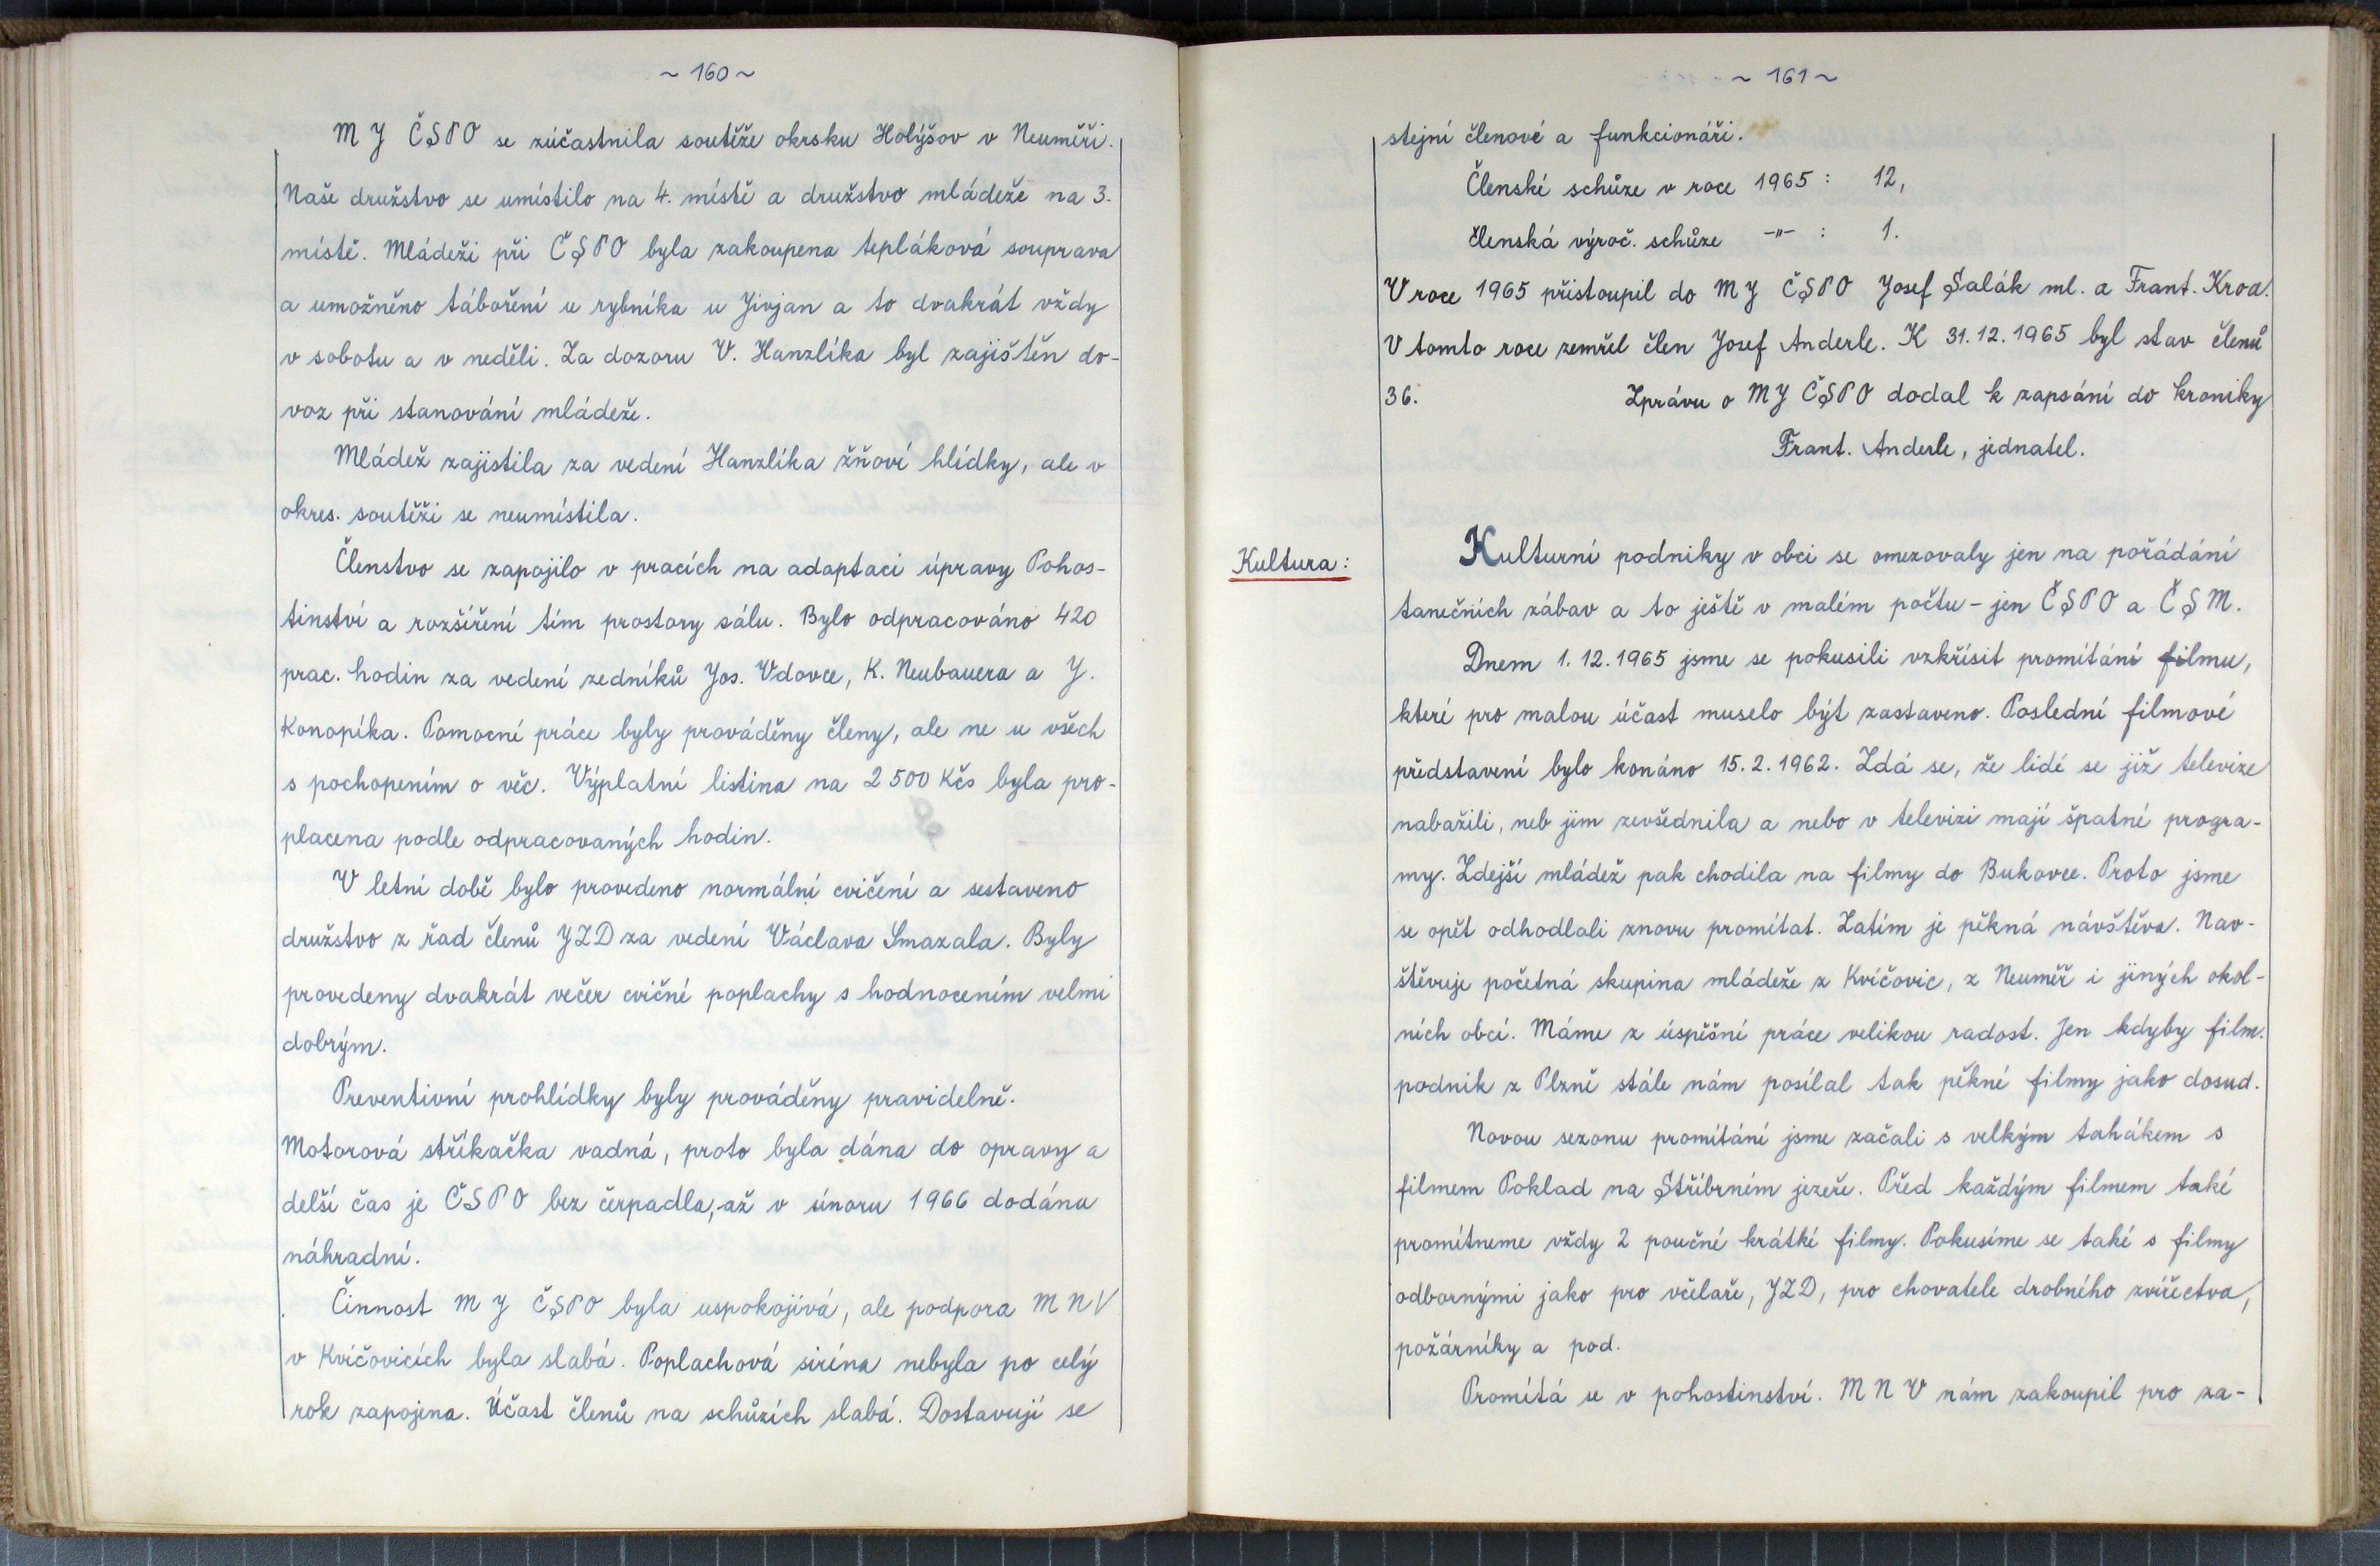 ~ 160 ~
M J ČSPO se zúčastnila soutěže okrsku Holýšov v Neuměři.
Naše družstvo se umístilo na 4. místě a družstvo mládeže na 3.
místě. Mládeži při ČSPO byla zakoupena tepláková souprava
a umožněno táboření u rybníka u Jivjan a to dvakrát vždy
v sobotu a v neděli. Za dozoru V. Hanzlíka byl zajištěn do-
voz při stanování mládeže.
Mládež zajistila za vedení Hanzlíka žňové hlídky, ale v
okres. soutěži se neumístila.
Členstvo se zapojilo v pracích na adaptaci úpravy Pohos-
tinství a rozšíření tím prostory sálu. Bylo odpracováno 420
prac. hodin za vedení zedníků Jos. Vdovce, K. Neubauera a J.
Konopíka. Pomocné práce byly prováděny členy, ale ne u všech
s pochopením o věc. Výplatní listina na 2 500 Kčs byla pro-
placena podle odpracovaných hodin.
V letní době bylo provedeno normální cvičení a sestaveno
družstvo z řad členů JZD za vedení Václava Smazala. Byly
provedeny dvakrát večer cvičné poplachy s hodnocením velmi
dobrým.
Preventivní prohlídky byly prováděny pravidelně.
Motorová stříkačka vadná, proto byla dána do opravy a
delší čas je ČSPO bez čerpadla, až v únoru 1966 dodána
náhradní.
Činnost M J ČSPO byla uspokojivá, ale podpora M N V
v Kvíčovicích byla slabá. Poplachová siréna nebyla po celý
rok zapojena. Účast členů na schůzích slabá. Dostavují se
~ 161 ~
stejní členové a funkcionáři.
Členské schůze v roce 1965 : 12,
členská výroč. schůze -"- : 1.
V roce 1965 přistoupil do M J ČSPO Josef Šalák ml. a Frant. Kroa.
V tomto roce zemřel člen Josef Anderle. K 31.12.1965 byl stav členů
36. Zprávu o MJ ČSPO dodal k zapsání do kroniky
Frant. Anderle, jednatel.
Kultura:
Kulturní podniky v obci se omezovaly jen na pořádání
tanečních zábav a to ještě v malém počtu - jen ČSPO a ČSM.
Dnem 1. 12. 1965 jsme se pokusili vzkřísit promítání filmu,
které pro malou účast muselo být zastaveno. Poslední filmové
představení bylo konáno 15. 2. 1962. Zdá se, že lidé se již televize
nabažili, neb jim zevšednila a nebo v televizi mají špatné progra-
my. Zdejší mládež pak chodila na filmy do Bukovce. Proto jsme
se opět odhodlali znovu promítat. Zatím je pěkná návštěva. Nav-
štěvuje početná skupina mládeže z Kvíčovic, z Neuměř i jiných okol-
ních obcí. Máme z úspěšné práce velikou radost. Jen kdyby film.
podnik z Plzně stále nám posílal tak pěkné filmy jako dosud.
Novou sezonu promítání jsme začali s velkým tahákem s
filmem Poklad na Stříbrném jezeře. Před každým filmem také
promítneme vždy 2 poučné krátké filmy. Pokusíme se také s filmy
odbornými jako pro včelaře, JZD, pro chovatele drobného zvířectva,
požárníky a pod.
Promítá se v pohostinství. M N V nám zakoupil pro za-